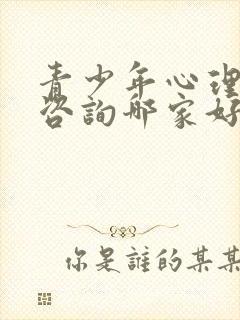 青少年心理
咨询哪家好
你是誰的某某